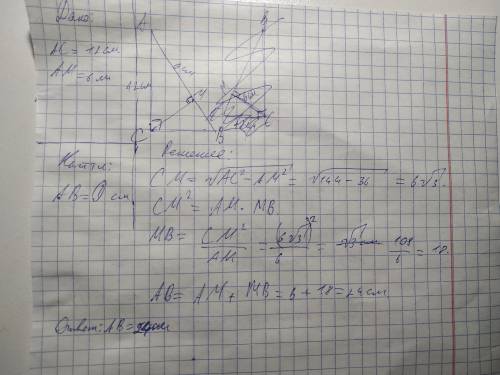 Дано:
AC = 12 см
AM = 6 см
A
12 см
6 см
M
C
B
Найти:
AB = ? см
Решение:
CM = √AC² - AM² = √144 - 36 = 6√3.
CM² = AM · MB.
MB = CM² / AM = (6√3)² / 6 = 108 / 6 = 18.
AB = AM + MB = 6 + 18 = 24 см
Ответ: AB = 24 см